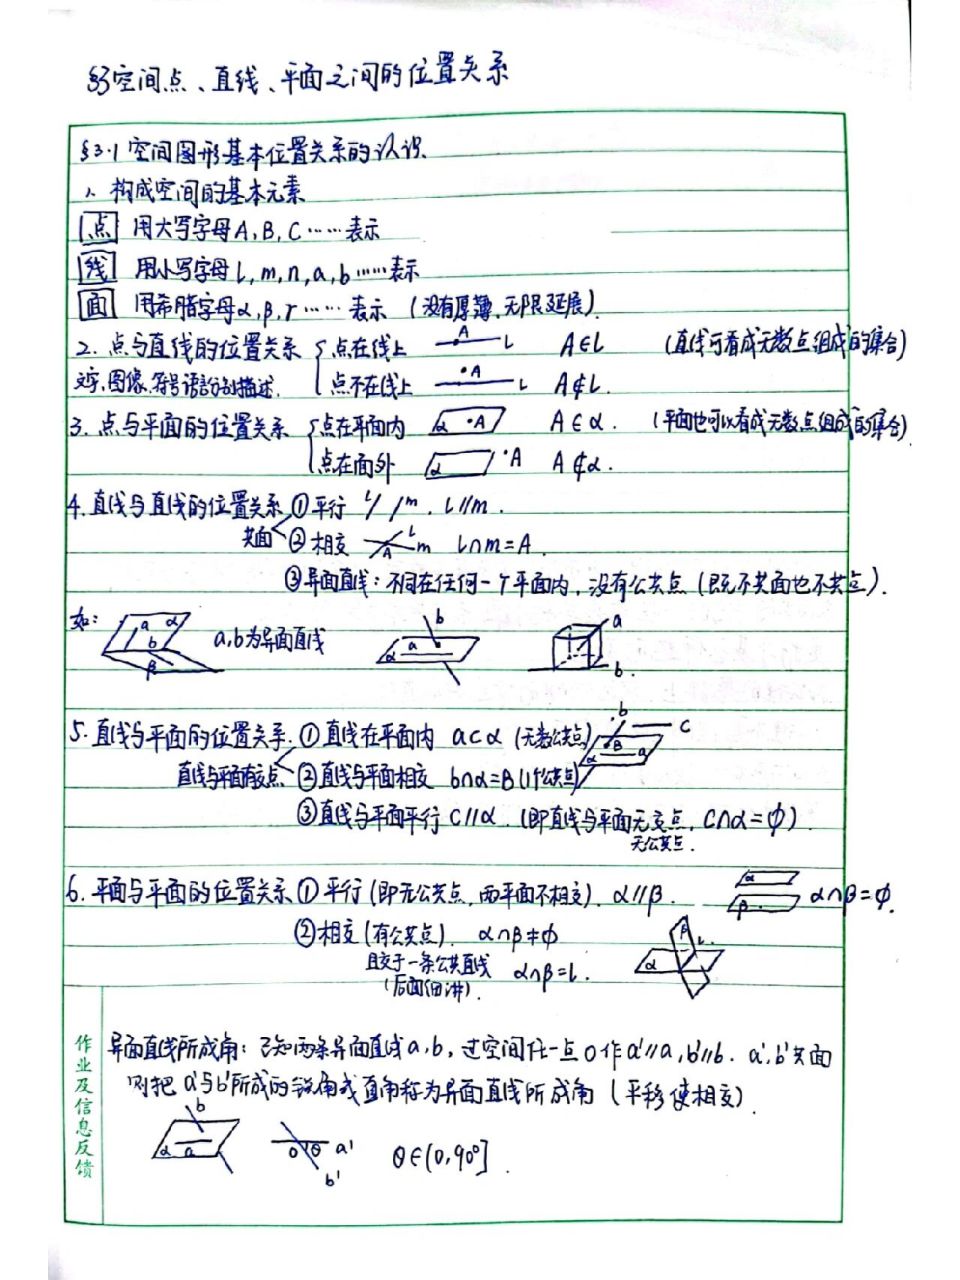 §3 空间点、直线、平面之间的位置关系
§3.1 空间图形基本位置关系的认识.
1、构成空间的基本元素
点 用大写字母A,B,C……表示
线 用小写字母l,m,n,a,b……表示
面 用希腊字母α,β,γ……表示 (没有厚薄,无限延展).
2. 点与直线的位置关系 点在线上 A l A∈l (直线可看成无数点组成的集合)
文字、图像、符号语言分别描述. 点不在线上 A l A∉l.
3. 点与平面的位置关系 点在平面内 α A A∈α. (平面也可以看成无数点组成的集合)
点在面外 α A A∉α.
4. 直线与直线的位置关系 ①平行 l m. l//m.
共面 ②相交 A l m l∩m=A.
③异面直线:不同在任何一个平面内,没有公共点(既不共面也不共点).
如: a α b β a,b为异面直线 b α a a b.
5. 直线与平面的位置关系. ①直线在平面内 a⊂α (无数公共点) b c α B a
直线与平面有交点 ②直线与平面相交 b∩α=B(1个公共点)
③直线与平面平行 c//α. (即直线与平面无交点, c∩α=∅).
无公共点.
6. 平面与平面的位置关系 ①平行(即无公共点,两平面不相交). α//β. α β α∩β=∅.
②相交(有公共点). α∩β≠∅ β l α
且交于一条公共直线 α∩β=l.
(后面细讲).
作业及信息反馈
异面直线所成角: 已知两条异面直线a,b, 过空间任一点O作a'//a,b'//b. a',b'共面
则把a'与b'所成的锐角或直角称为异面直线所成角 (平移使相交).
b α a O θ a' b' θ∈(0,90°].